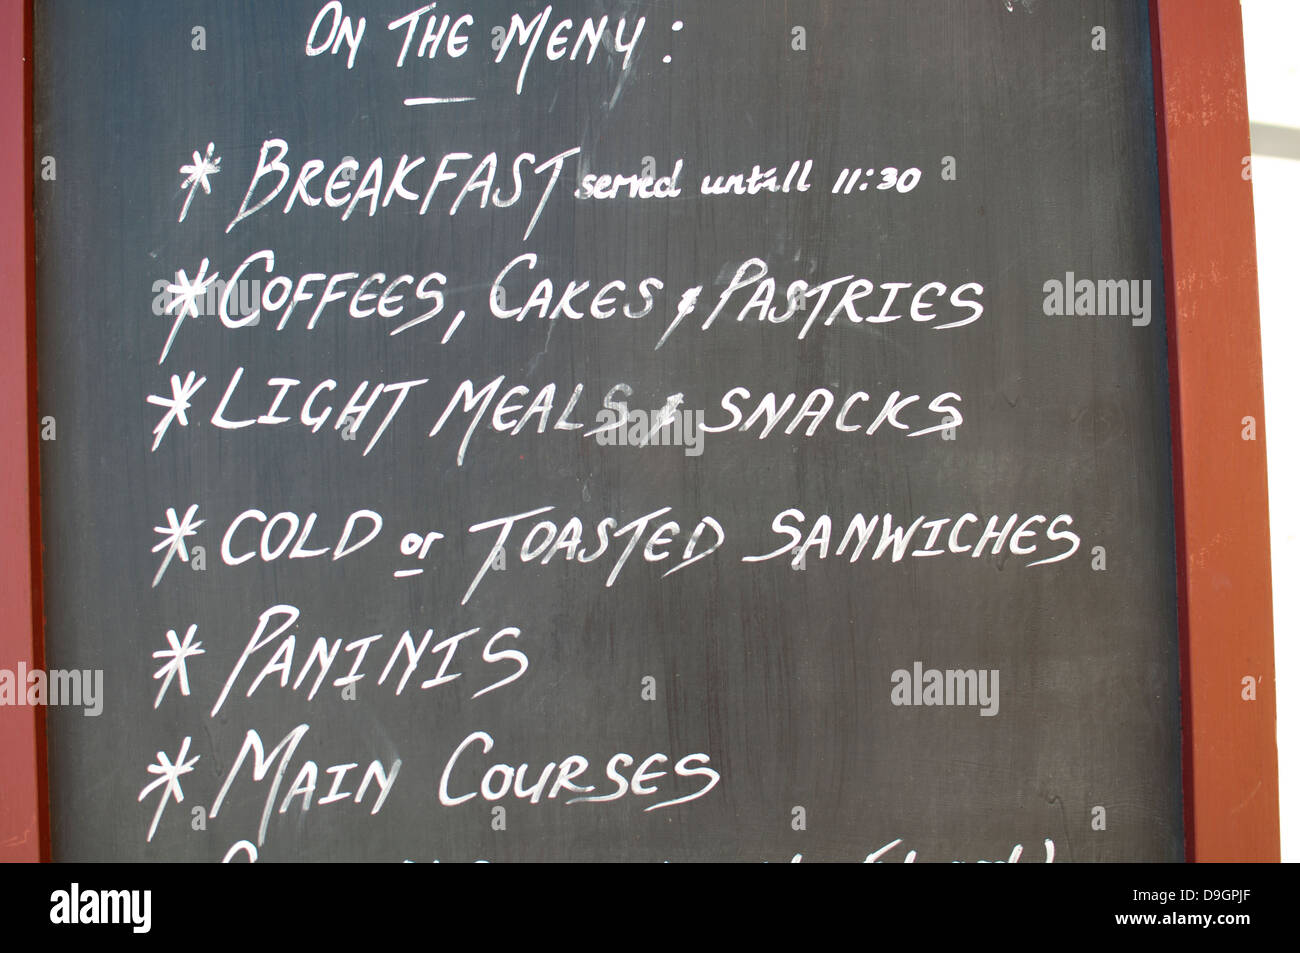 ON THE MENU:
* BREAKFAST served untill 11:30
* COFFEES, CAKES & PASTRIES
* LIGHT MEALS & SNACKS
* COLD or TOASTED SANWICHES
* PANINIS
* MAIN COURSES
alamy
Image ID: D9GPJF
www.alamy.com